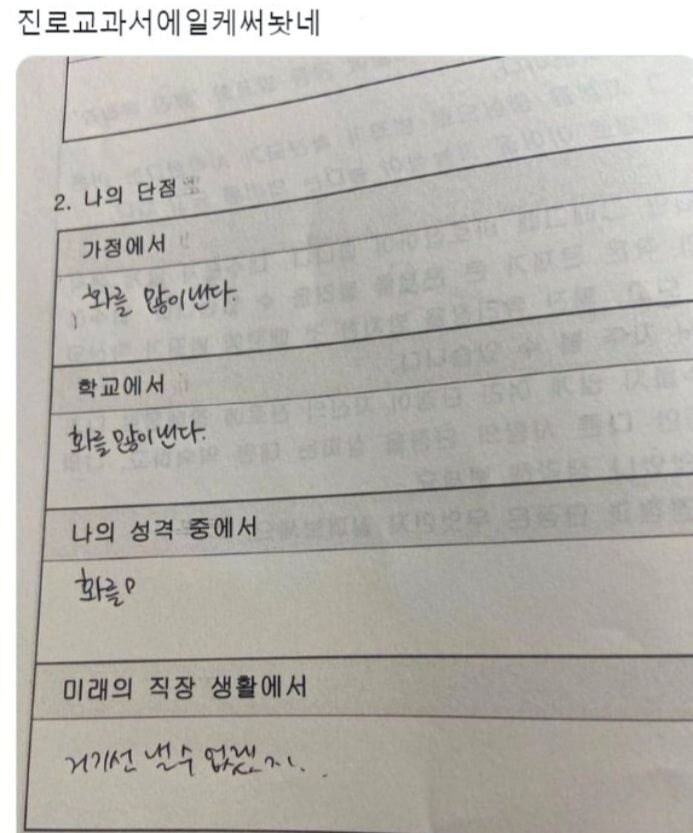 진로교과서에일케써놧네
2. 나의 단점
가정에서
화를 많이낸다.
학교에서
화를많이낸다.
나의 성격 중에서
화를ㅁ
미래의 직장 생활에서
거기선 낼수 없겠지..